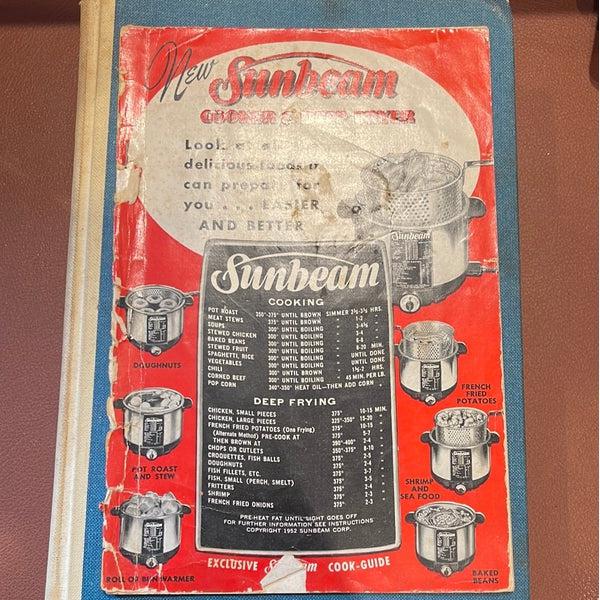 New
Sunbeam
COOKER & DEEP FRYER
Look at all the
delicious foods it
can prepare for
you... EASIER
AND BETTER
Sunbeam
Sunbeam
COOKING
POT ROAST 350°-375° UNTIL BROWN SIMMER 2½-3½ HRS.
MEAT STEWS 375° UNTIL BROWN " 1-2 "
SOUPS 300° UNTIL BOILING " 3-4½ "
STEWED CHICKEN 300° UNTIL BOILING " 3-4 "
BAKED BEANS 300° UNTIL BOILING " 6-8 "
STEWED FRUIT 300° UNTIL BOILING " 8-20 MIN.
SPAGHETTI, RICE 300° UNTIL BOILING " UNTIL DONE
VEGETABLES 300° UNTIL BOILING " UNTIL DONE
CHILI 300° UNTIL BOILING " 1½-2 HRS.
CORNED BEEF 300° UNTIL BOILING " 45 MIN. PER LB.
POP CORN 340°-350° HEAT OIL—THEN ADD CORN "
DEEP FRYING
CHICKEN, SMALL PIECES 375° 10-15 MIN.
CHICKEN, LARGE PIECES 325°-350° 15-20 "
FRENCH FRIED POTATOES (One Frying) 375° 10-15 "
(Alternate Method) PRE-COOK AT 375° 5-7 "
THEN BROWN AT 390°-400° 2-4 "
CHOPS OR CUTLETS 350°-375° 8-10 "
CROQUETTES, FISH BALLS 375° 2-5 "
DOUGHNUTS 375° 2-4 "
FISH FILLETS, ETC. 375° 3-7 "
FISH, SMALL (PERCH, SMELT) 375° 3-5 "
FRITTERS 375° 2-4 "
SHRIMP 375° 2-3 "
FRENCH FRIED ONIONS 375° 2-3 "
PRE-HEAT FAT UNTIL LIGHT GOES OFF
FOR FURTHER INFORMATION SEE INSTRUCTIONS
COPYRIGHT 1952 SUNBEAM CORP.
EXCLUSIVE Sunbeam COOK-GUIDE
DOUGHNUTS
POT ROAST
AND STEW
ROLL OR BUN WARMER
FRENCH
FRIED
POTATOES
SHRIMP
AND
SEA FOOD
BAKED
BEANS